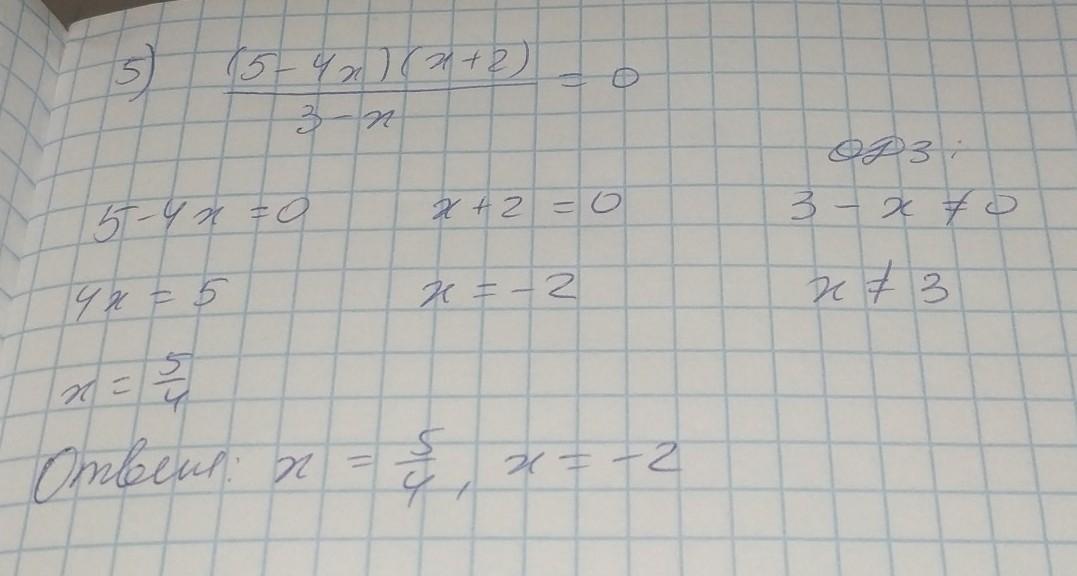 5) (5-4x)(x+2) / 3-x = 0
ОДЗ:
5-4x=0 x+2=0 3-x≠0
4x=5 x=-2 x≠3
x=5/4
Ответ: x=5/4, x=-2